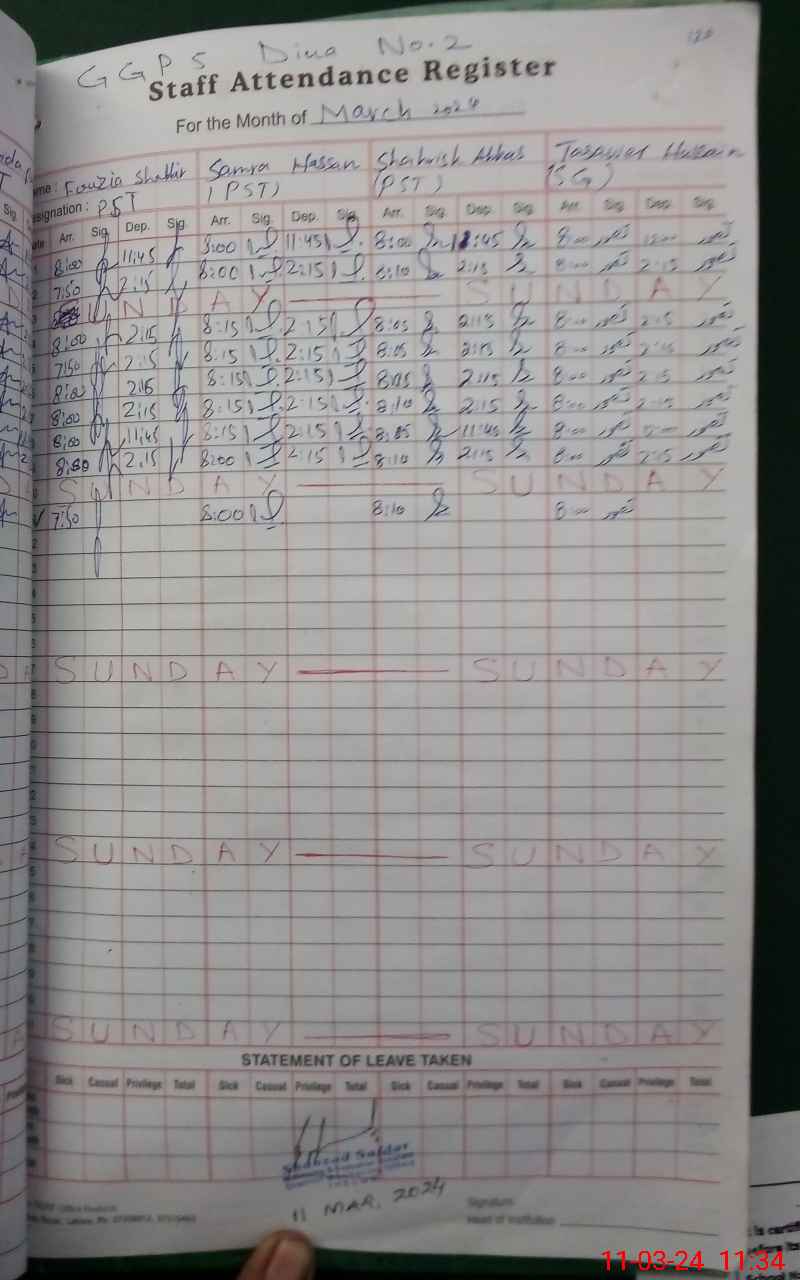 GGPS Dina No. 2
Staff Attendance Register
For the Month of March 2024
Name: Fouzia Shabbir Samra Hassan Shahrish Abbas Hussain
Designation: PST (PST) (PST)
Arr. Sig. Dep. Sig. Arr. Sig. Dep. Sig. Arr. Sig. Dep. Sig. Arr. Sig. Dep. Sig.
8:00 11:45 8:00 11:45 8:00 11:45 8:00 تصور 12:00 تصور
7:50 2:15 8:00 2:15 8:10 2:15 8:00 تصور 2:15 تصور
SUNDAY — SUNDAY
8:00 2:15 8:15 2:15 8:05 2:15 8:00 تصور 2:15 تصور
7:50 2:15 8:15 2:15 8:05 2:15 8:00 تصور 2:15 تصور
8:00 2:15 8:15 2:15 8:05 2:15 8:00 تصور 2:15 تصور
8:00 2:15 8:15 2:15 8:10 2:15 8:00 تصور 2:15 تصور
8:00 11:45 8:15 2:15 8:05 11:45 8:00 تصور 12:00 تصور
8:00 2:15 8:00 2:15 8:10 2:15 8:00 تصور 2:15 تصور
SUNDAY — SUNDAY
7:50 8:00 8:10 8:00 تصور
SUNDAY — SUNDAY
SUNDAY — SUNDAY
SUNDAY — SUNDAY
STATEMENT OF LEAVE TAKEN
Sick Casual Privilege Total Sick Casual Privilege Total Sick Casual Privilege Total Sick Casual Privilege Total
Shahzad Safdar
11 MAR, 2024
Signature
Head of Institution
11-03-24 11:34